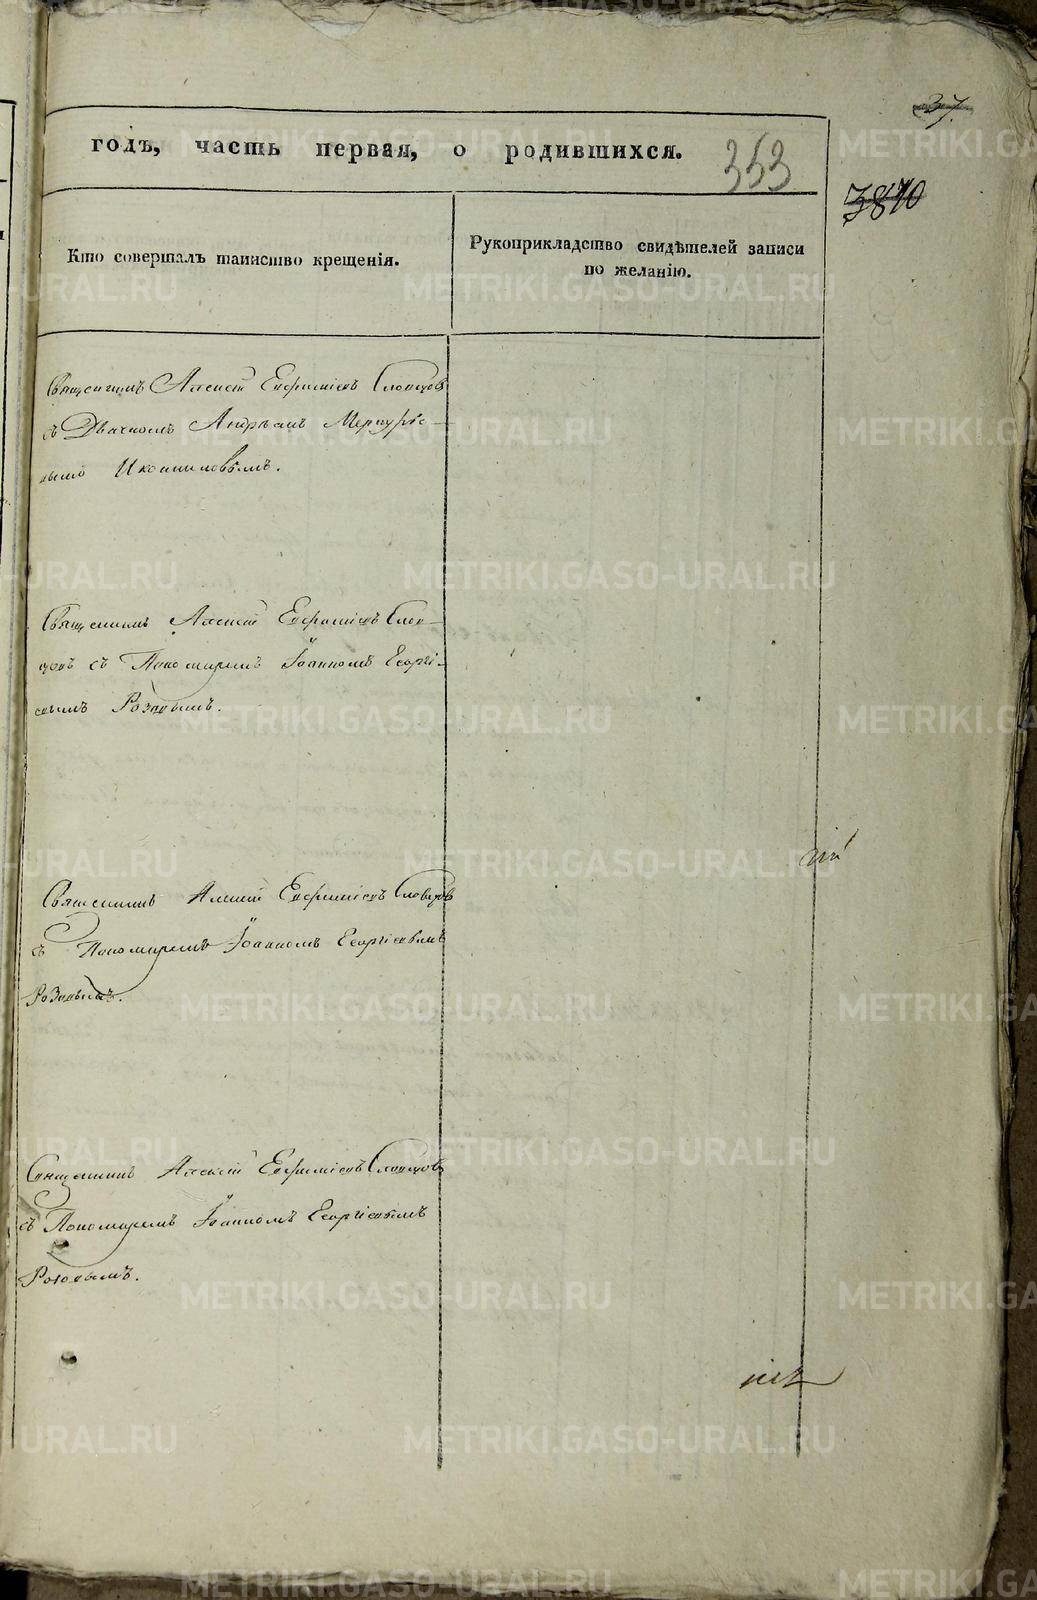 37.
годъ, часть первая, о родившихся.
353
3870
Кто совершалъ таинство крещенія.
Рукоприкладство свидѣтелей записи
по желанію.
Священникъ Алексій Евфиміевъ Словцовъ
съ Діакономъ Андреемъ Меркурье-
вымъ Иконниковымъ.
Священникъ Алексій Евфиміевъ Слов-
цовъ съ Пономаремъ Іоанномъ Георгі-
евымъ Розовымъ.
Священникъ Алексій Евфиміевъ Словцовъ
съ Пономаремъ Іоанномъ Георгіевымъ
Розовымъ.
Священникъ Алексій Евфиміевъ Словцовъ
съ Пономаремъ Іоанномъ Георгіевымъ
Розовымъ.
METRIKI.GASO-URAL.RU